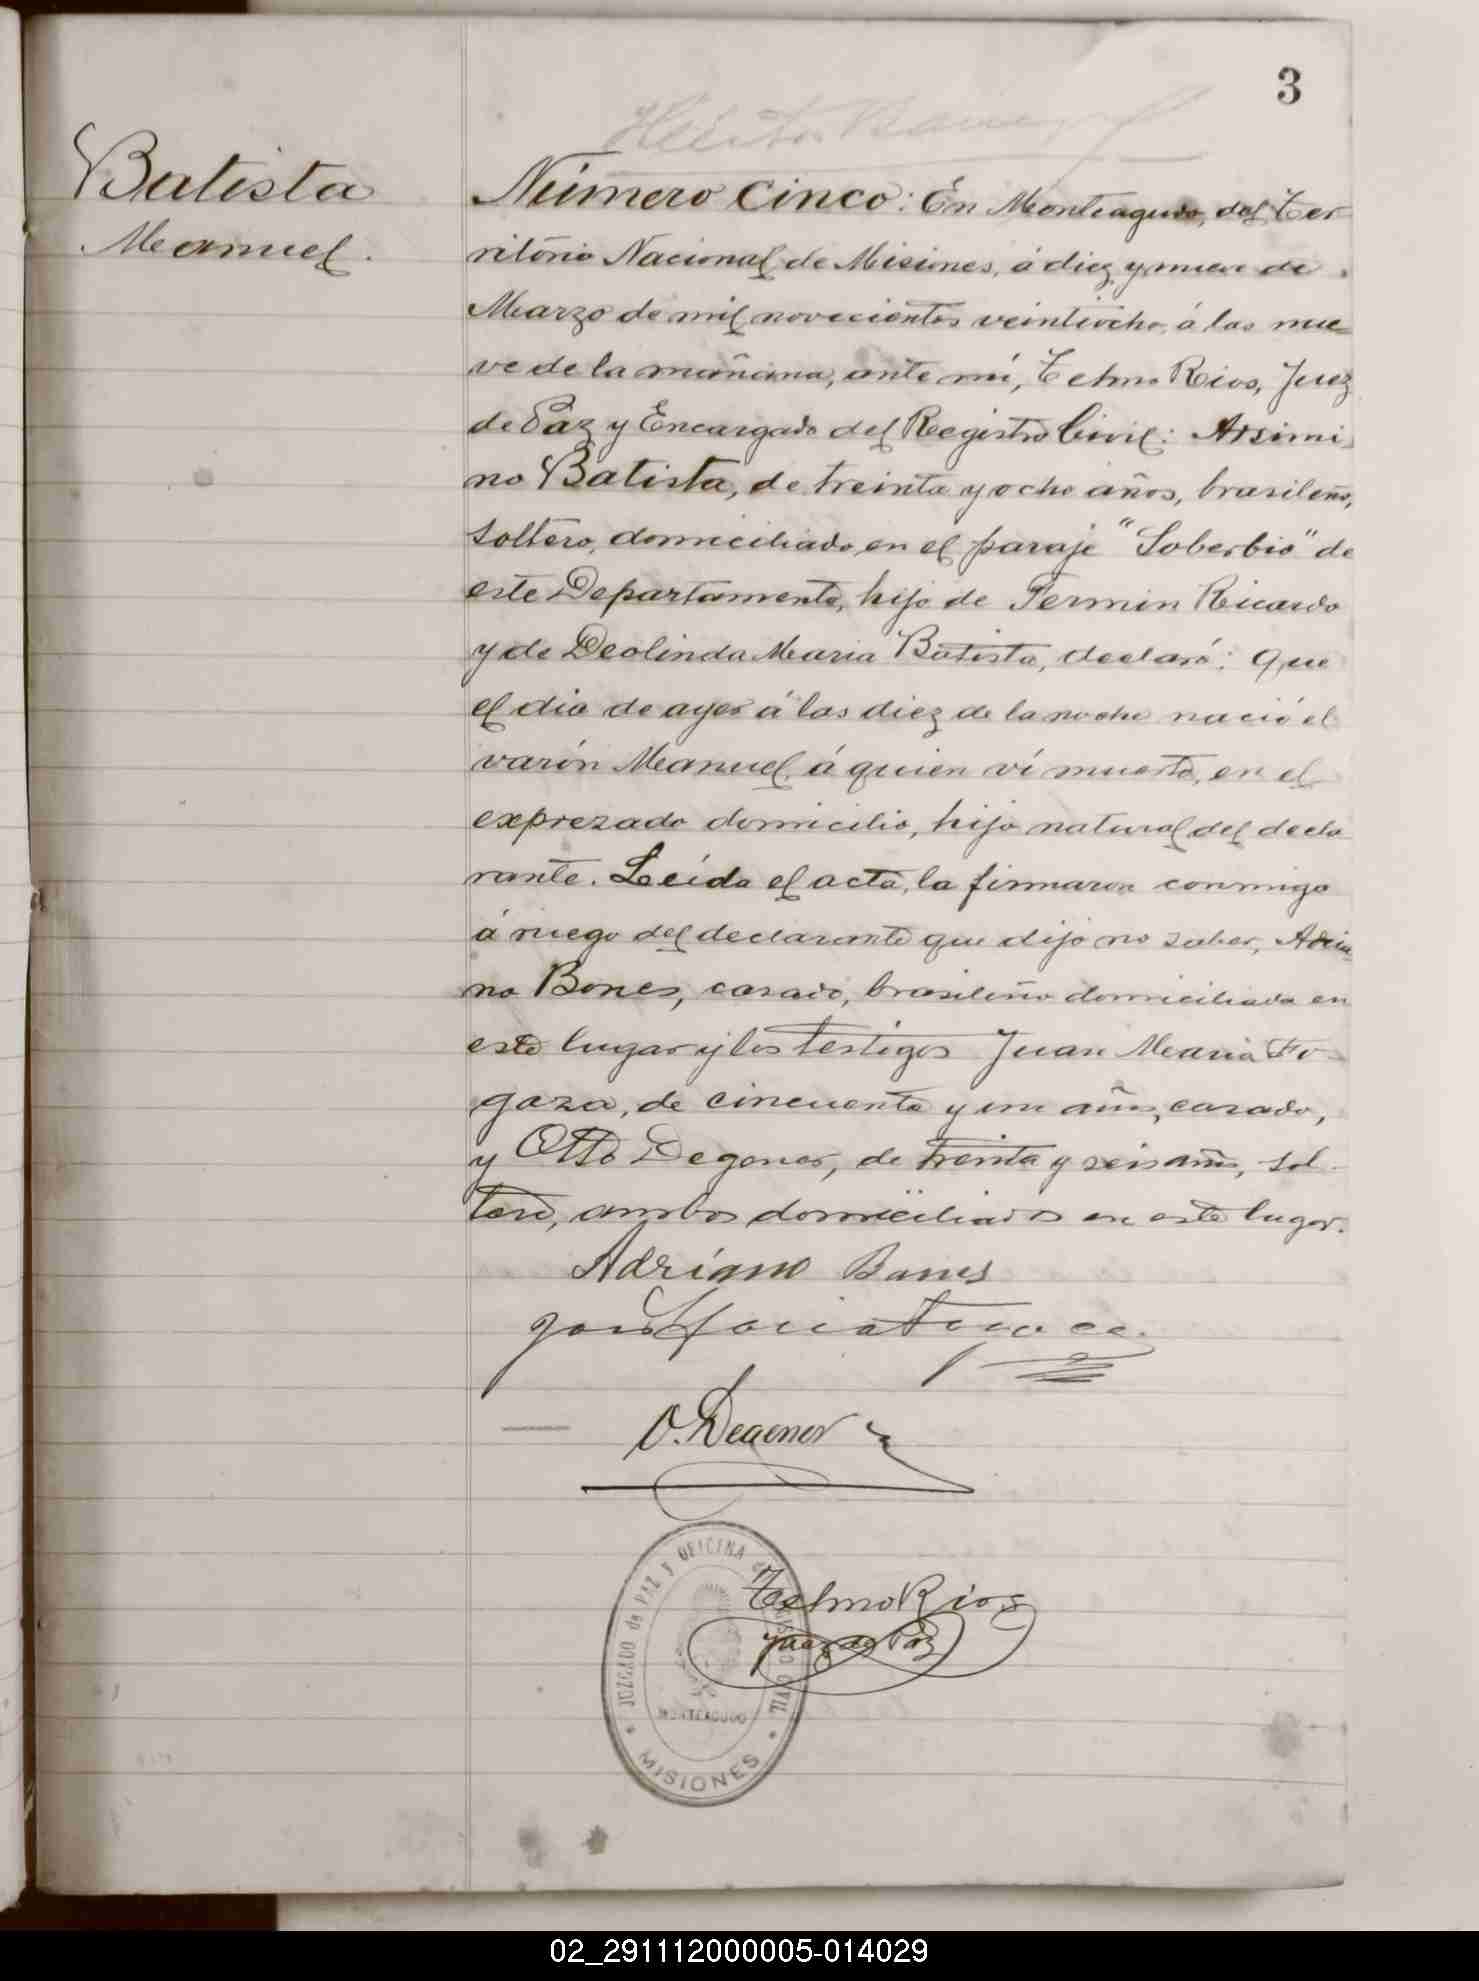 3
Batista
Manuel.
Número cinco: En Monteagudo, del Ter-
ritório Nacional de Misiones, á diez y nueve de
Marzo de mil novecientos veintiocho, á las nue-
ve de la mañana, ante mí, Telmo Rios, Juez
de Paz y Encargado del Registro Civil: Arsimi-
no Batista, de treinta y ocho años, brasileño,
soltero, domiciliado en el paraje "Soberbio" de
este Departamento, hijo de Fermin Ricardo
y de Deolinda Maria Batista, declaró: Que
el dia de ayer á las diez de la noche nació el
varón Manuel, á quien ví muerto, en el
exprezado domicilio, hijo natural del decla
rante. Leída el acta, la firmaron conmigo
á ruego del declarante que dijo no saber, Adria
no Bones, casado, brasileño domiciliado en
este lugar y los testigos Juan Maria Fo-
gaza, de cincuenta y un años, casado,
y Otto Degener, de treinta y seis años, sol-
tero, ambos domiciliados en este lugar.
Adriano Bones
O. Degener
Telmo Rios
Juez de Paz
JUZGADO de PAZ Y OFICINA CIVIL
MONTEAGUDO
MISIONES
02_291112000005-014029